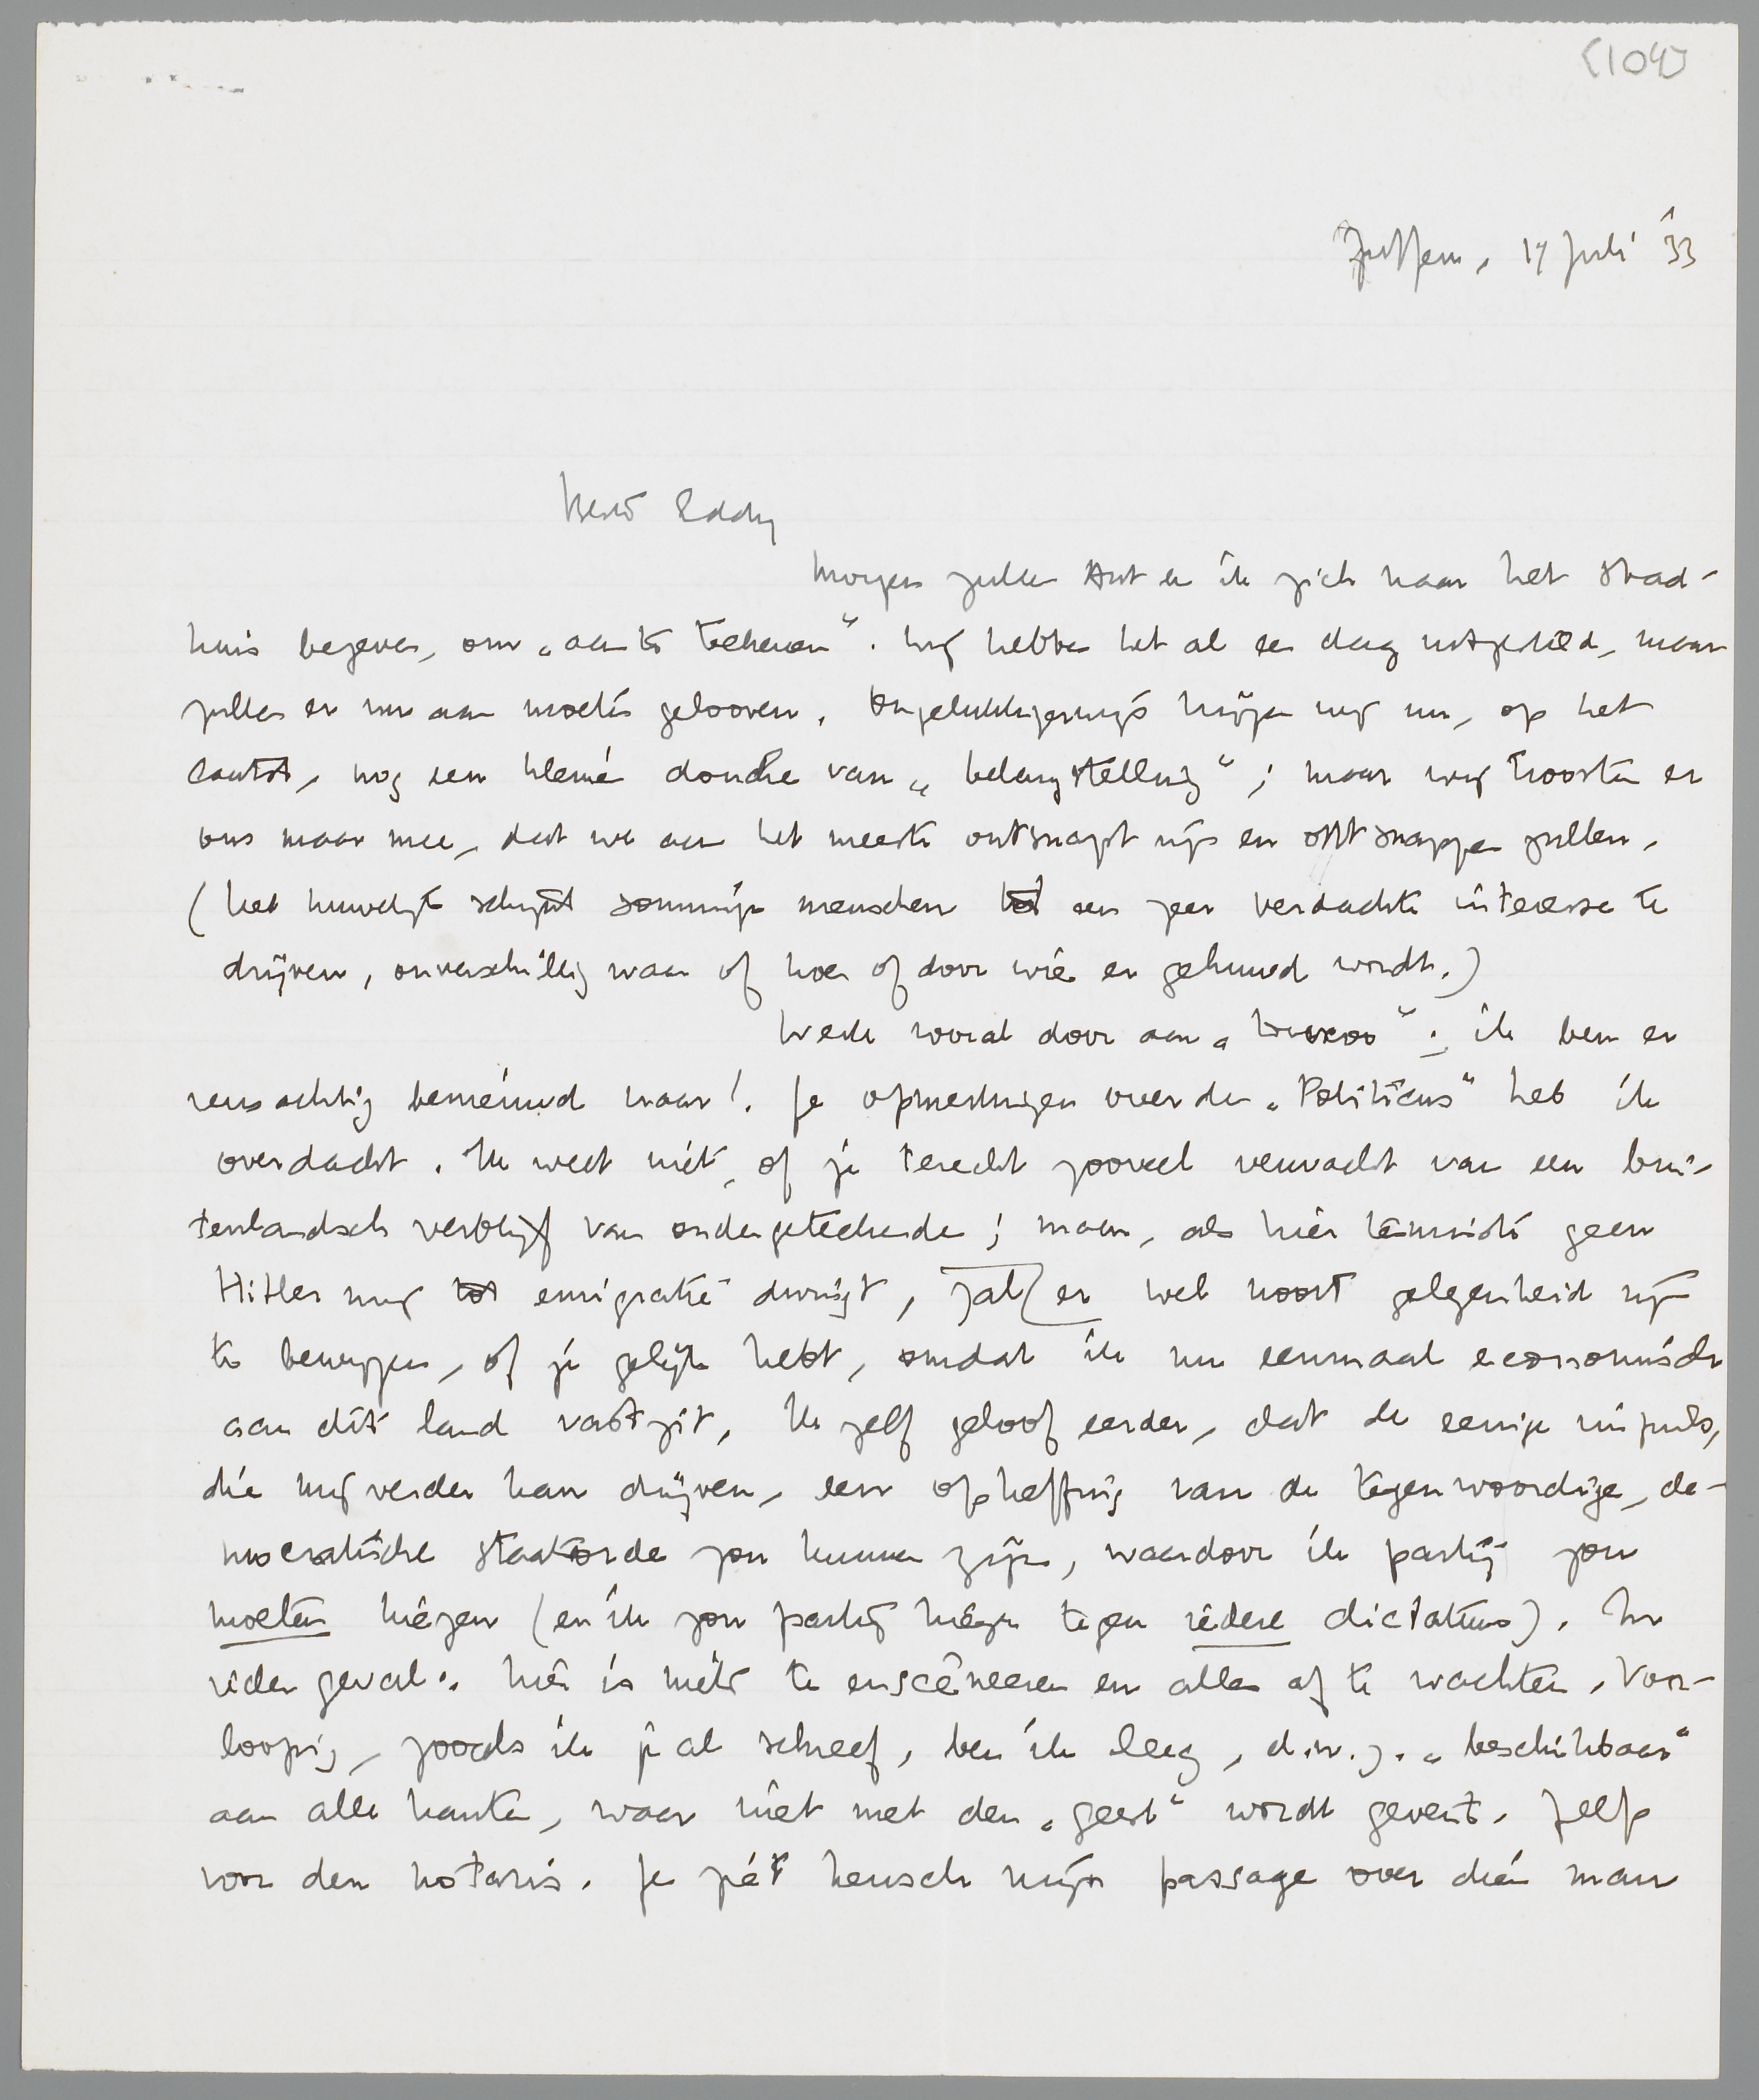 (104)
Zutfen, 17 Juli '33
Beste Eddy
Morgen zullen Ant en ik zich naar het stad-
huis begeven, om „aan te teekenen”. Wij hebben het al een dag uitgesteld, maar
zullen er nu aan moeten gelooven. Ongelukkigerwijs krijgen wij nu, op het
laatst, nog een kleine douche van „belangstelling”; maar wij troosten er
ons maar mee, dat we aan het meeste ontsnapt zijn en ontsnappen zullen.
(het huwelijk schijnt sommige menschen tot een zeer verdachte interesse te
drijven, onverschillig waar of hoe of door wie er gehuwd wordt.)
Werk vooral door aan „ ”; ik ben er
reusachtig benieuwd naar! Je opmerkingen over den „Politicus” heb ik
overdacht. Ik weet niet, of je terecht zooveel verwacht van een bui-
tenlandsch verblijf van ondergeteekende; maar, als hier tenminste geen
Hitler mij tot emigratie dwingt, zal er wel nooit gelegenheid zijn
te bewijzen, of je gelijk hebt, omdat ik nu eenmaal economisch
aan dit land vastzit. Ik zelf geloof eerder, dat de eenige impuls,
die mij verder kan drijven, een opheffing van de tegenwoordige, de-
mocratische staatsorde zou kunnen zijn, waardoor ik partij zou
moeten kiezen (en ik zou partij kiezen tegen iedere dictatuur). In
ieder geval: hier is niets te ensceneeren en alles af te wachten. Voor-
loopig, zooals ik je al schreef, ben ik leeg, d.w.z. „beschikbaar”
aan alle kanten, waar niet met den „geest” wordt gevent. Zelfs
voor den notaris. Je ziet heusch mijn passage over dien man